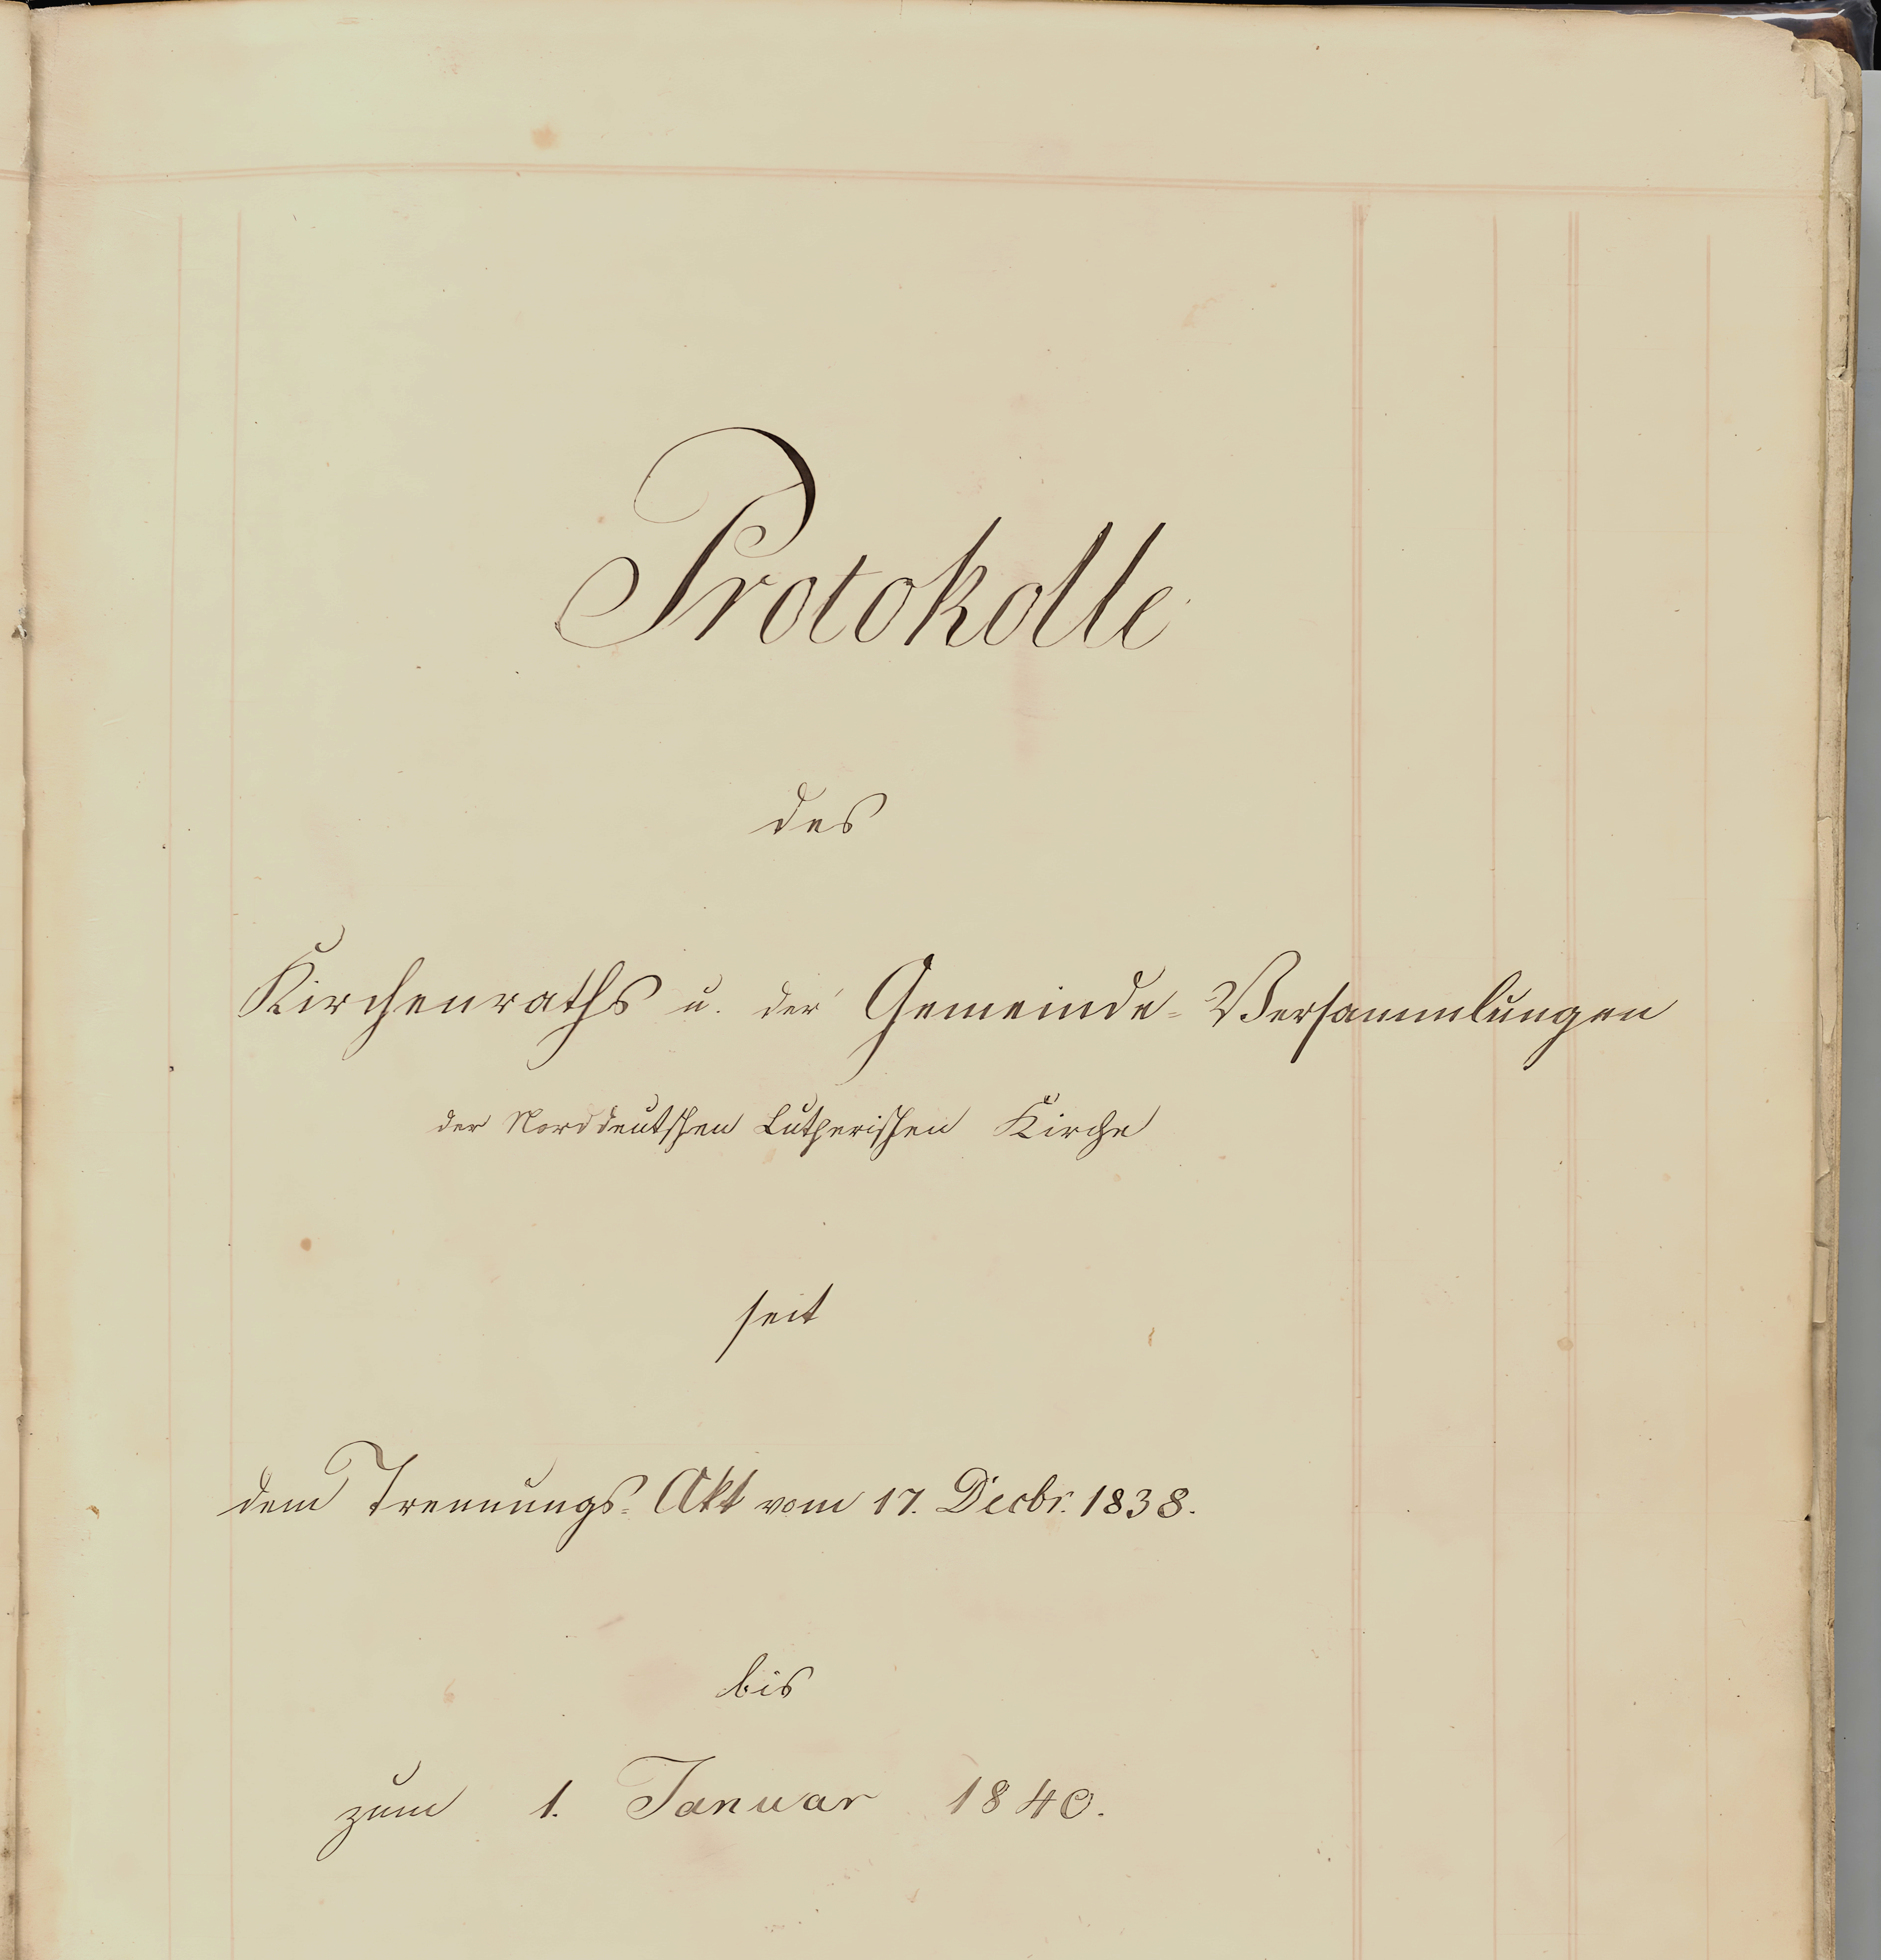 Protokolle
des
Kirchenraths u. der Gemeinde-Versammlungen
der Norddeutschen Lutherischen Kirche
seit
dem Trennungs-Akt vom 17. Decbr. 1838.
bis
zum 1. Januar 1840.